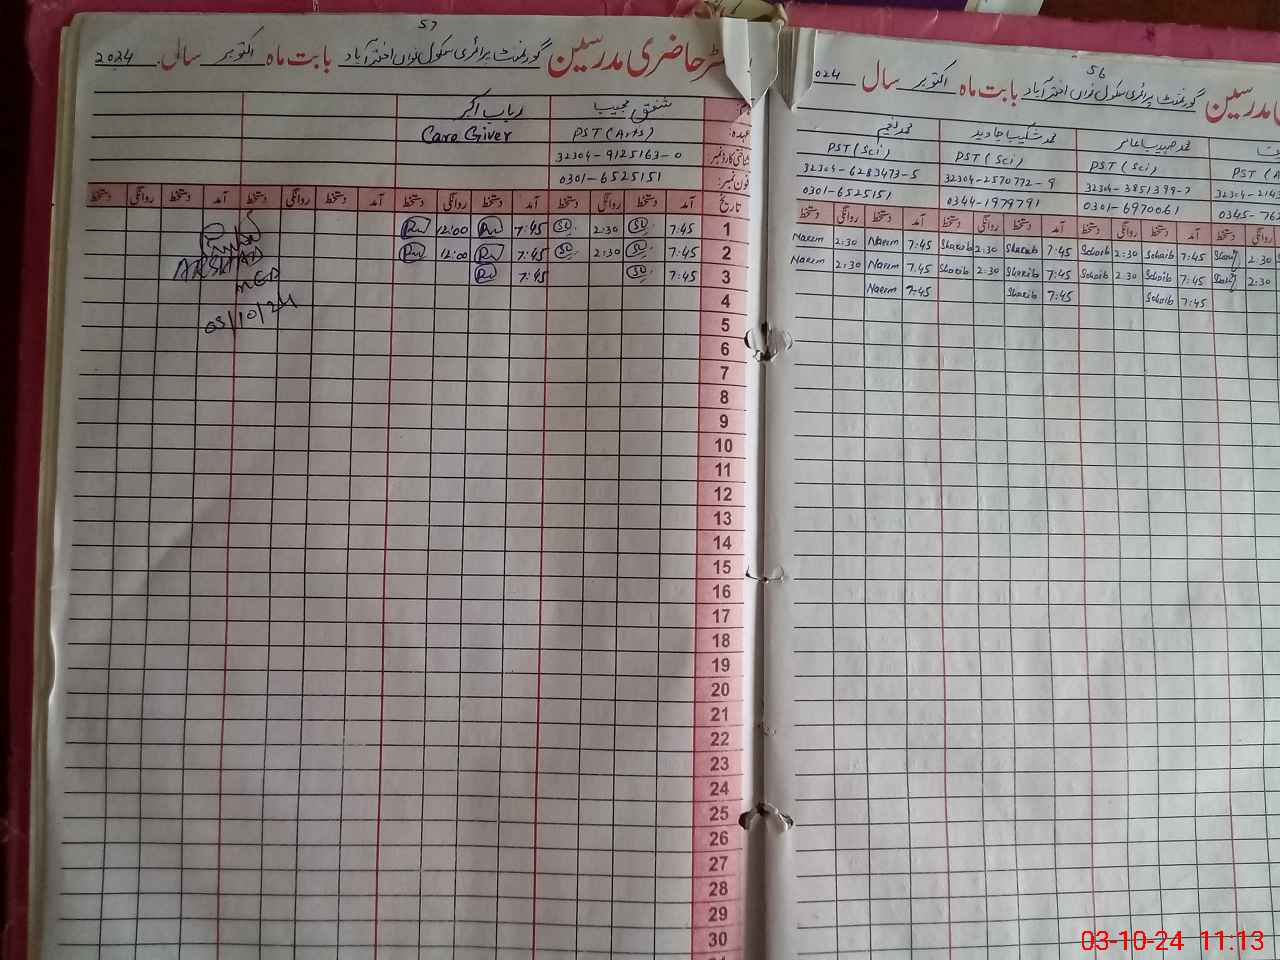 57
رجسٹر حاضری مدرسین گورنمنٹ پرائمری سکول نواں اختر آباد بابت ماہ اکتوبر سال 2024
شفق مجیب رباب اکبر
عہدہ: PST (Arts) Care Giver
شناختی کارڈ نمبر 32304-9125163-0
فون نمبر: 0301-6525151
تاریخ آمد دستخط روانگی دستخط آمد دستخط روانگی دستخط آمد دستخط روانگی دستخط آمد دستخط روانگی دستخط
1 7:45 2:30 7:45 12:00
2 7:45 2:30 7:45 12:00
3 7:45 7:45
4
5
6
7
8
9
10
11
12
13
14
15
16
17
18
19
20
21
22
23
24
25
26
27
28
29
30
ARSHAD
MED
03/10/24
56
مدرسین گورنمنٹ پرائمری سکول نواں اختر آباد بابت ماہ اکتوبر سال 024
محمد صہیب عامر محمد شکیب جاوید محمد نعیم
PST (A PST (Sci) PST (Sci) PST (Sci)
32304-3851399-7 32304-2570772-9 32304-6283473-5
0345-76 0301-6970061 0344-1979791 0301-6525151
دستخط آمد دستخط روانگی دستخط آمد دستخط روانگی دستخط آمد دستخط روانگی دستخط
2:30 7:45 Sohaib 2:30 Sohaib 7:45 Shakib 2:30 Shakib 7:45 Naeem 2:30 Naeem
2:30 7:45 Sohaib 2:30 Sohaib 7:45 Shakib 2:30 Shakib 7:45 Naeem 2:30 Naeem
7:45 Sohaib 7:45 Shakib 7:45 Naeem
03-10-24 11:13